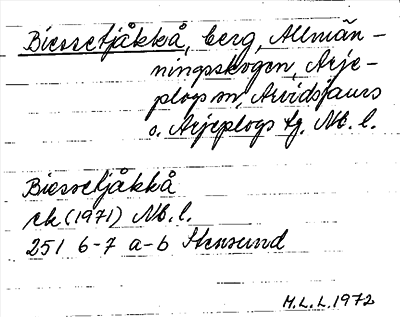 Biessetjåkkå, berg, Allmän-
ningskogen, Arje-
plogs sn, Arvidsjaurs
o. Arjeplogs tg. Nb. l.
Biessetjåkkå
ek (1971) Nb. l.
251 6-7 a-b Stensund
M.L.L. 1972